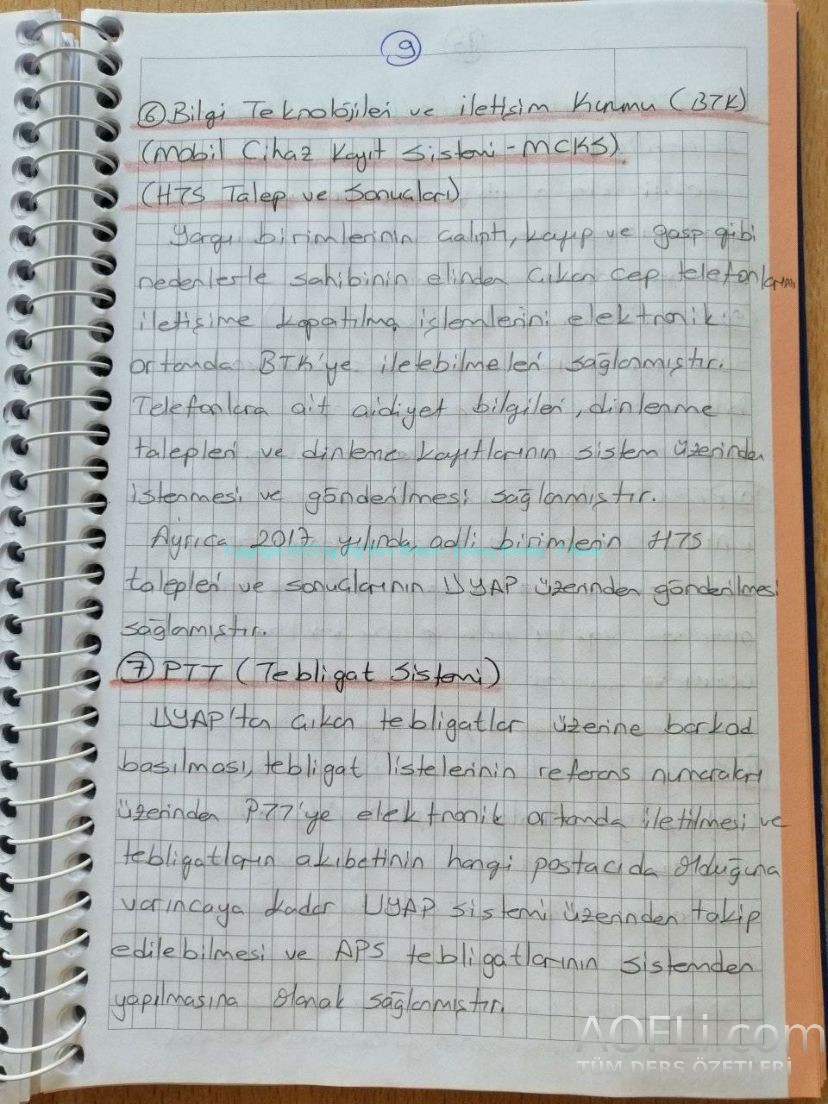 9
6 Bilgi Teknolojileri ve iletişim Kurumu (BTK)
(Mobil Cihaz Kayıt Sistemi - MCKS)
(HTS Talep ve Sonuçları)
Yargı birimlerinin çalıntı, kayıp ve gasp gibi
nedenlerle sahibinin elinden çıkan cep telefonlarının
iletişime kapatılma işlemlerini elektronik
ortamda BTK'ye iletebilmeleri sağlanmıştır.
Telefonlara ait aidiyet bilgileri, dinlenme
talepleri ve dinleme kayıtlarının sistem üzerinden
istenmesi ve gönderilmesi sağlanmıştır.
Ayrıca 2017 yılında adli birimlerin HTS
talepleri ve sonuçlarının UYAP üzerinden gönderilmesi
sağlamıştır.
7 PTT (Tebligat Sistemi)
UYAP'tan çıkan tebligatlar üzerine barkod
basılması, tebligat listelerinin referans numaraları
üzerinden PTT'ye elektronik ortamda iletilmesi ve
tebligatların akıbetinin hangi postacıda olduğuna
varıncaya kadar UYAP sistemi üzerinden takip
edilebilmesi ve APS tebligatlarının sistemden
yapılmasına olanak sağlanmıştır.
AOFLi.com
TÜM DERS ÖZETLERİ